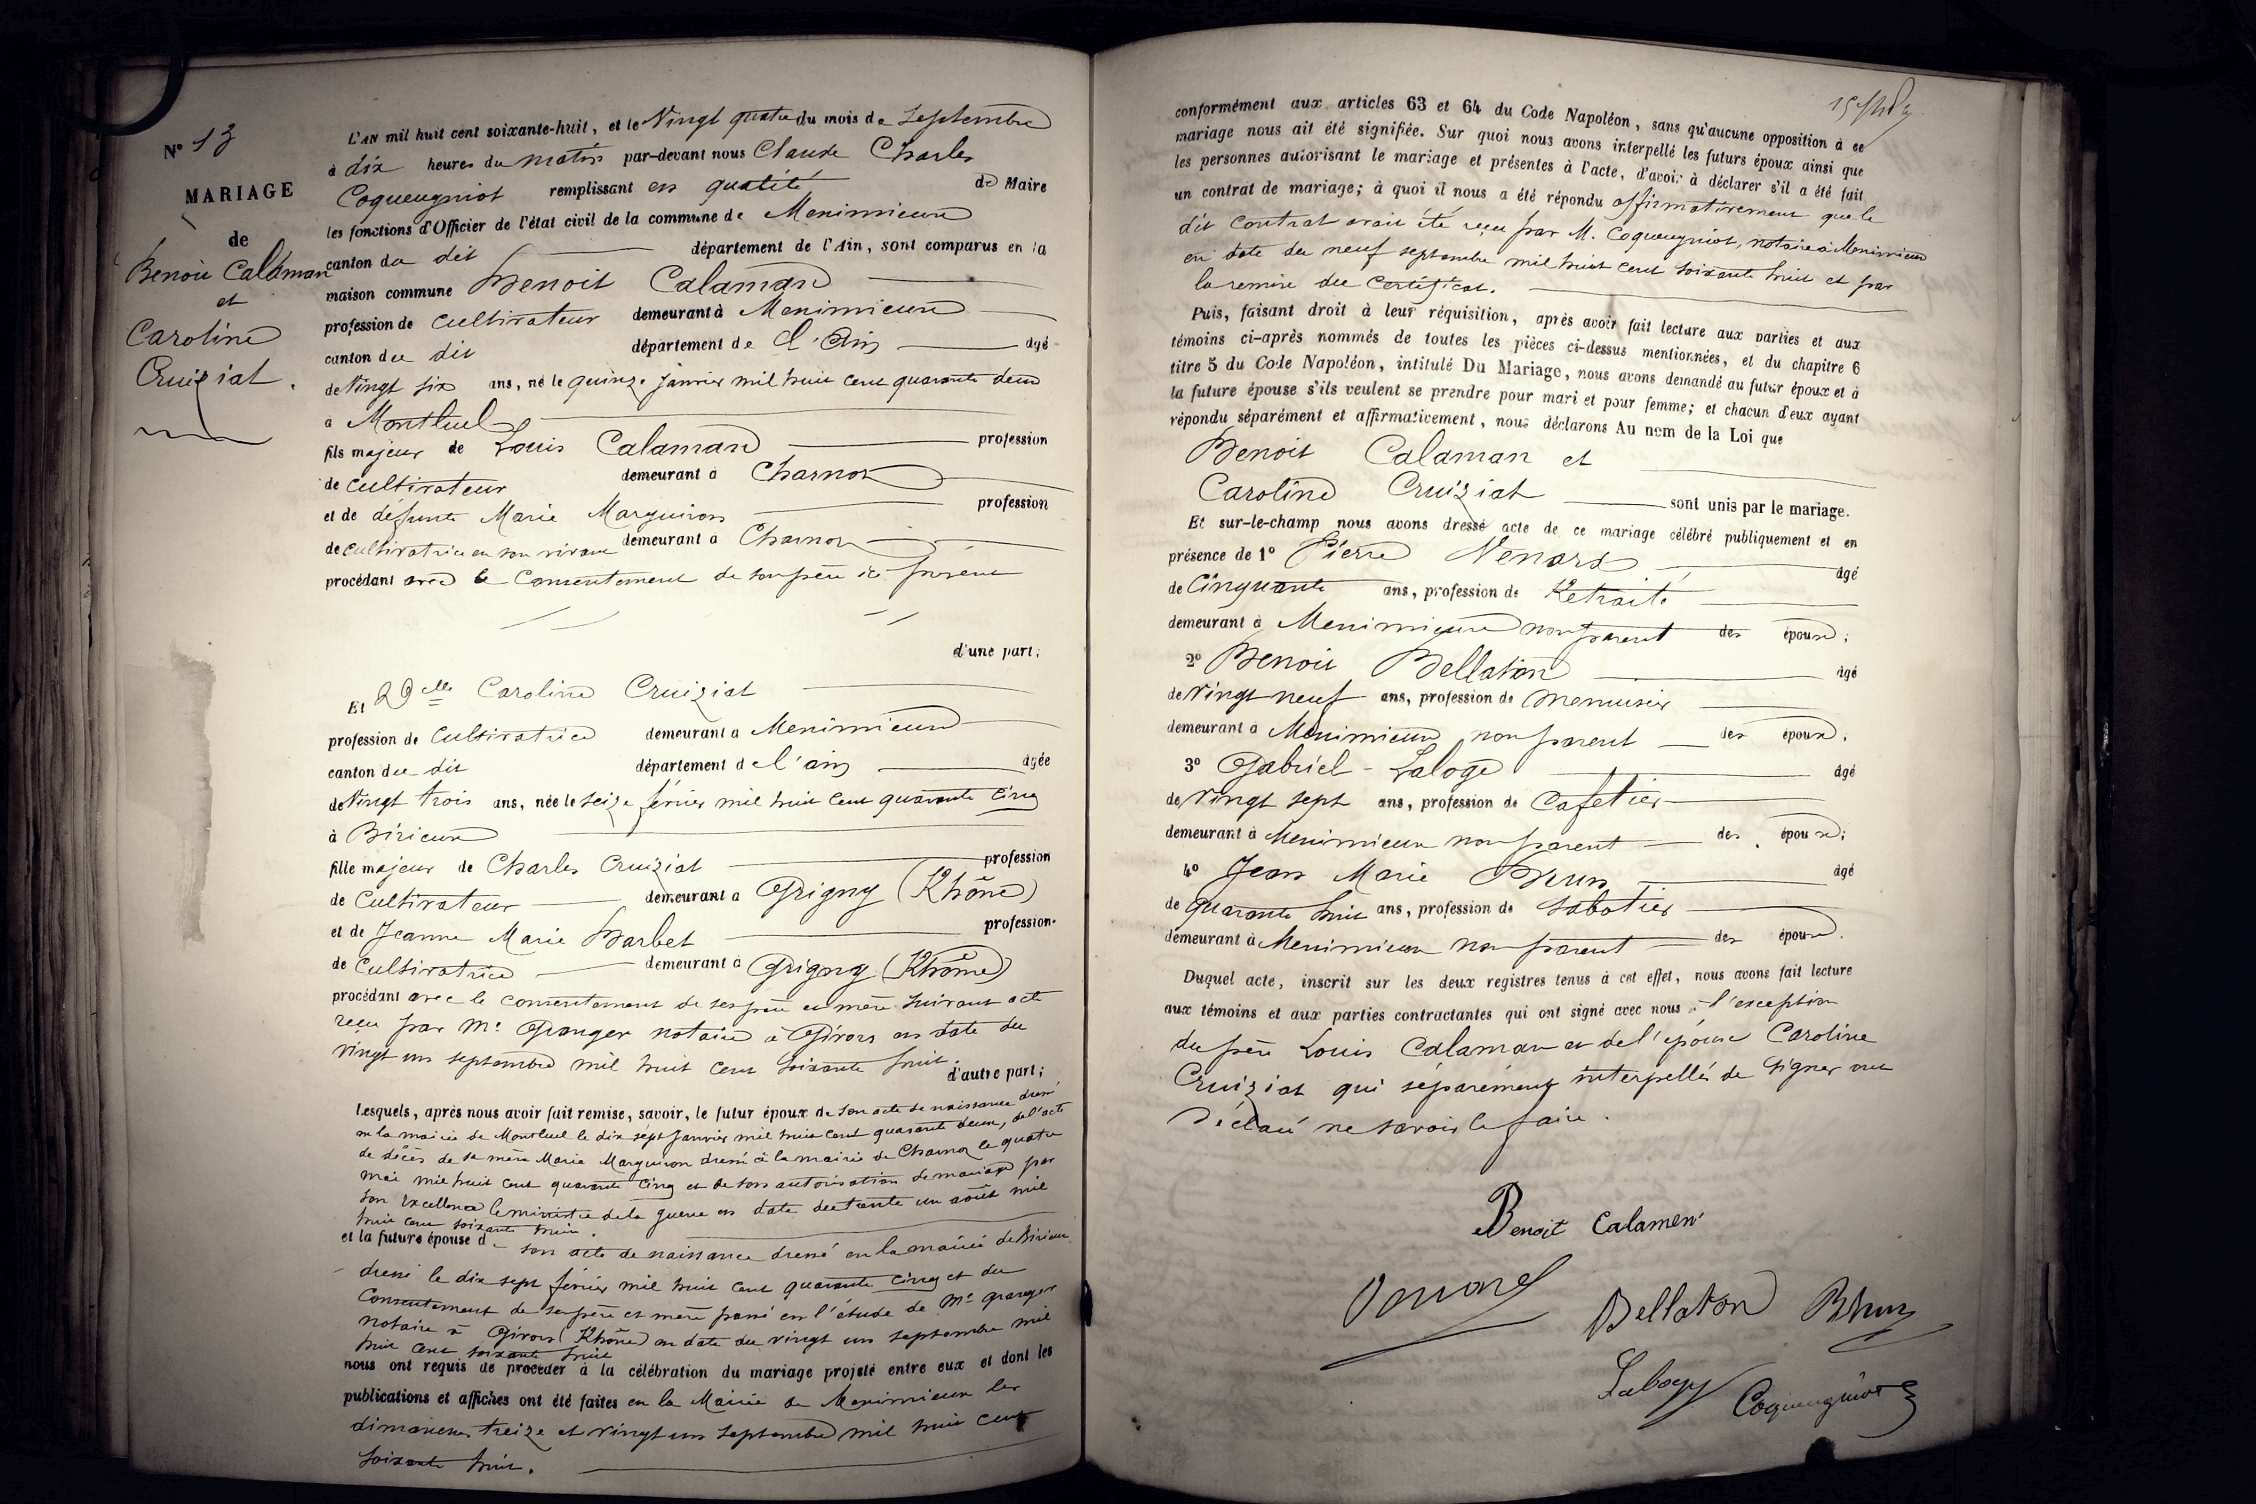 N° 13
MARIAGE
de
Benoit Calaman
et
Caroline
Cruiziat.
L'AN mil huit cent soixante-huit, et le Vingt quatre du mois de Septembre
à dix heures du matin par-devant nous Claude Charles
Coqueugniot remplissant en qualité de Maire
les fonctions d'Officier de l'état civil de la commune de Meximieux
canton du dit département de l'Ain, sont comparus en la
maison commune Benoit Calaman
profession de Cultivateur demeurant à Meximieux
canton du dit département de L'Ain âgé
de Vingt six ans, né le quinze janvier mil huit cent quarante deux
à Montluel
fils majeur de Louis Calaman profession
de cultivateur demeurant à Charnoz
et de défunte Marie Marguiron profession
de cultivatrice en son vivant demeurant à Charnoz
procédant avec le Consentement de son père ici présent
d'une part;
Et Dlle Caroline Cruiziat
profession de Cultivatrice demeurant à Meximieux
canton du dit département de l'ain âgée
de Vingt trois ans, née le seize février mil huit cent quarante cinq
à Birieux
fille majeur de Charles Cruiziat profession
de Cultivateur demeurant à Grigny (Rhône)
et de Jeanne Marie Barbet profession
de Cultivatrice demeurant à Grigny (Rhône)
procédant avec le consentement de ses père et mère suivant acte
reçu par Me Granger notaire à Givors en date du
vingt un septembre mil huit cent soixante huit.
d'autre part;
Lesquels, après nous avoir fait remise, savoir, le futur époux de son acte de naissance dressé
en la mairie de Montluel le dix sept janvier mil huit cent quarante deux, de l'acte
de décès de sa mère Marie Marguiron dressé à la mairie de Charnoz le quatre
mai mil huit cent quarante cinq et de son autorisation de mariage par
son Excellence le ministre de la guerre en date du trente un août mil
huit cent soixante huit.
et la future épouse d son acte de naissance dressé en la mairie de Birieux
dressé le dix sept février mil huit cent quarante cinq et du
Consentement de ses père et mère passé en l'étude de Me granger
notaire à Givors (Rhône) en date du vingt un septembre mil
huit cent soixante huit
nous ont requis de procéder à la célébration du mariage projeté entre eux et dont les
publications et affiches ont été faites en la Mairie de Meximieux les
dimanches treize et vingt un septembre mil huit cent
soixante huit.
conformément aux articles 63 et 64 du Code Napoléon, sans qu'aucune opposition à ce
mariage nous ait été signifiée. Sur quoi nous avons interpellé les futurs époux ainsi que
les personnes autorisant le mariage et présentes à l'acte, d'avoir à déclarer s'il a été fait
un contrat de mariage; à quoi il nous a été répondu affirmativement que le
dit Contrat avait été reçu par M. Coqueugniot, notaire à Meximieux
en date du neuf septembre mil huit cent soixante huit et par
la remise du certificat.
Puis, faisant droit à leur réquisition, après avoir fait lecture aux parties et aux
témoins ci-après nommés de toutes les pièces ci-dessus mentionnées, et du chapitre 6
titre 5 du Code Napoléon, intitulé Du Mariage, nous avons demandé au futur époux et à
la future épouse s'ils veulent se prendre pour mari et pour femme; et chacun d'eux ayant
répondu séparément et affirmativement, nous déclarons Au nom de la Loi que
Benoit Calaman et
Caroline Cruiziat sont unis par le mariage.
Et sur-le-champ nous avons dressé acte de ce mariage célébré publiquement et en
présence de 1° Pierre Venard âgé
de Cinquante ans, profession de Retraité
demeurant à Meximieux non parent des époux;
2° Benoit Bellaton âgé
de Vingt neuf ans, profession de menuisier
demeurant à Meximieux non parent des époux.
3° Gabriel Laloge âgé
de Vingt sept ans, profession de Cafetier
demeurant à Meximieux non parent des époux;
4° Jean Marie Brun âgé
de quarante huit ans, profession de Sabotier
demeurant à Meximieux non parent des époux.
Duquel acte, inscrit sur les deux registres tenus à cet effet, nous avons fait lecture
aux témoins et aux parties contractantes qui ont signé avec nous à l'exception
du père Louis Calaman et de l'épouse Caroline
Cruiziat qui séparément interpellés de signer ont
déclaré ne savoir le faire.
Benoit Calamen
Venard
Bellaton Brun
Laloge Coqueugniot